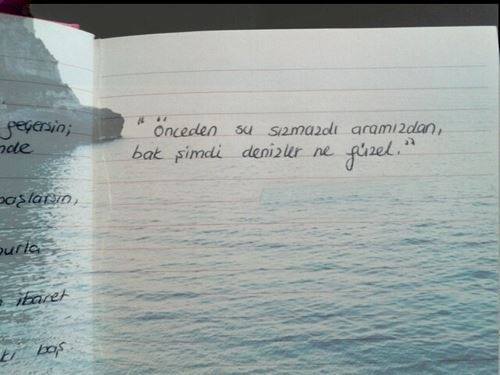 geçersin;
başlarsın,
ibaret
baş
"Önceden su sızmazdı aramızdan,
bak şimdi denizler ne güzel."